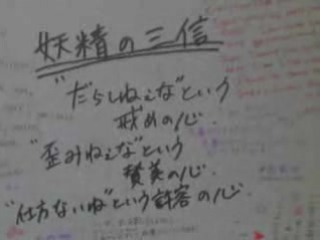 妖精の三信
"だらしねぇな"という
戒めの心.
"歪みねぇな"という
賛美の心.
"仕方ないね"という許容の心